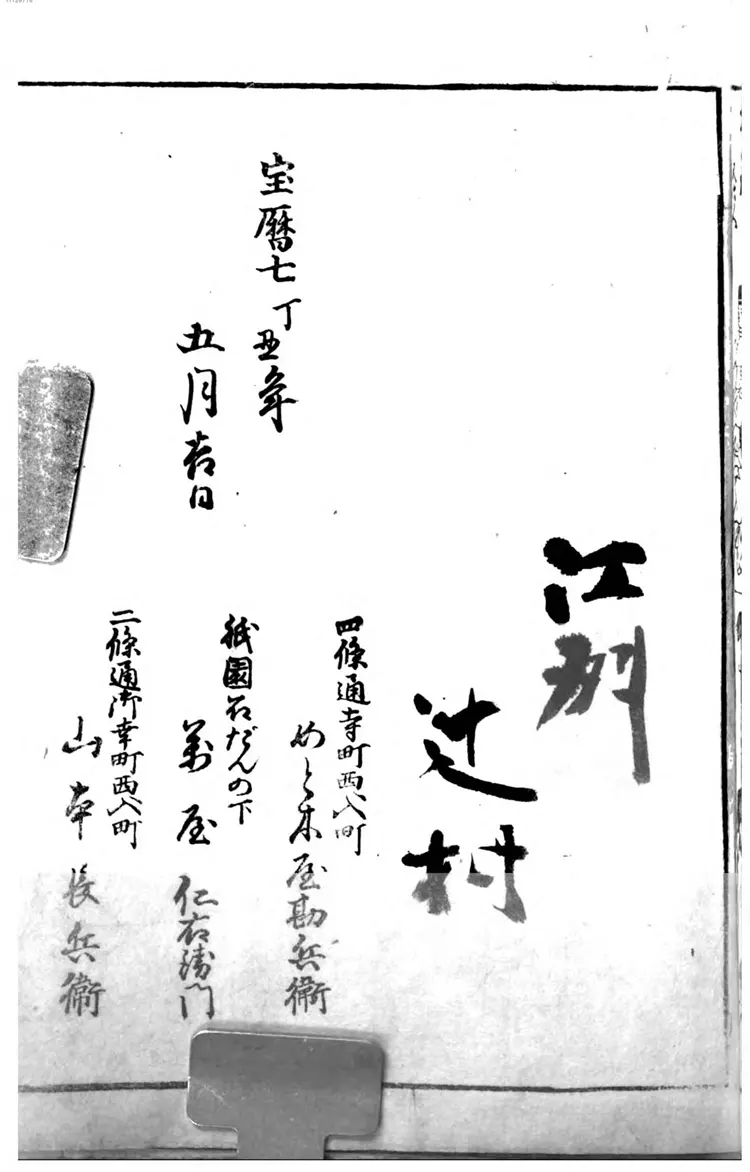 江州
辻村
宝暦七丁丑年
五月吉日
四條通寺町西入町
めと木屋勘兵衛
祇園石だんの下
萬屋仁右衛門
二條通御幸町西入町
山本長兵衛